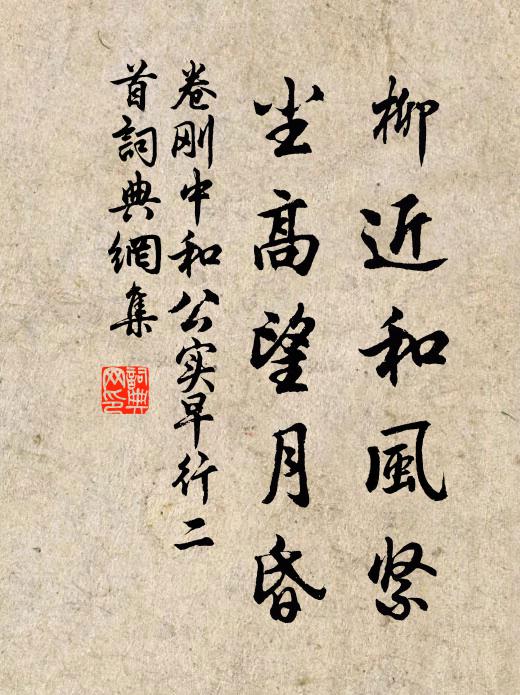 柳近和風紧
尘高望月昏
卷刚中和公实早行二
首詞典網集
詞典
网印